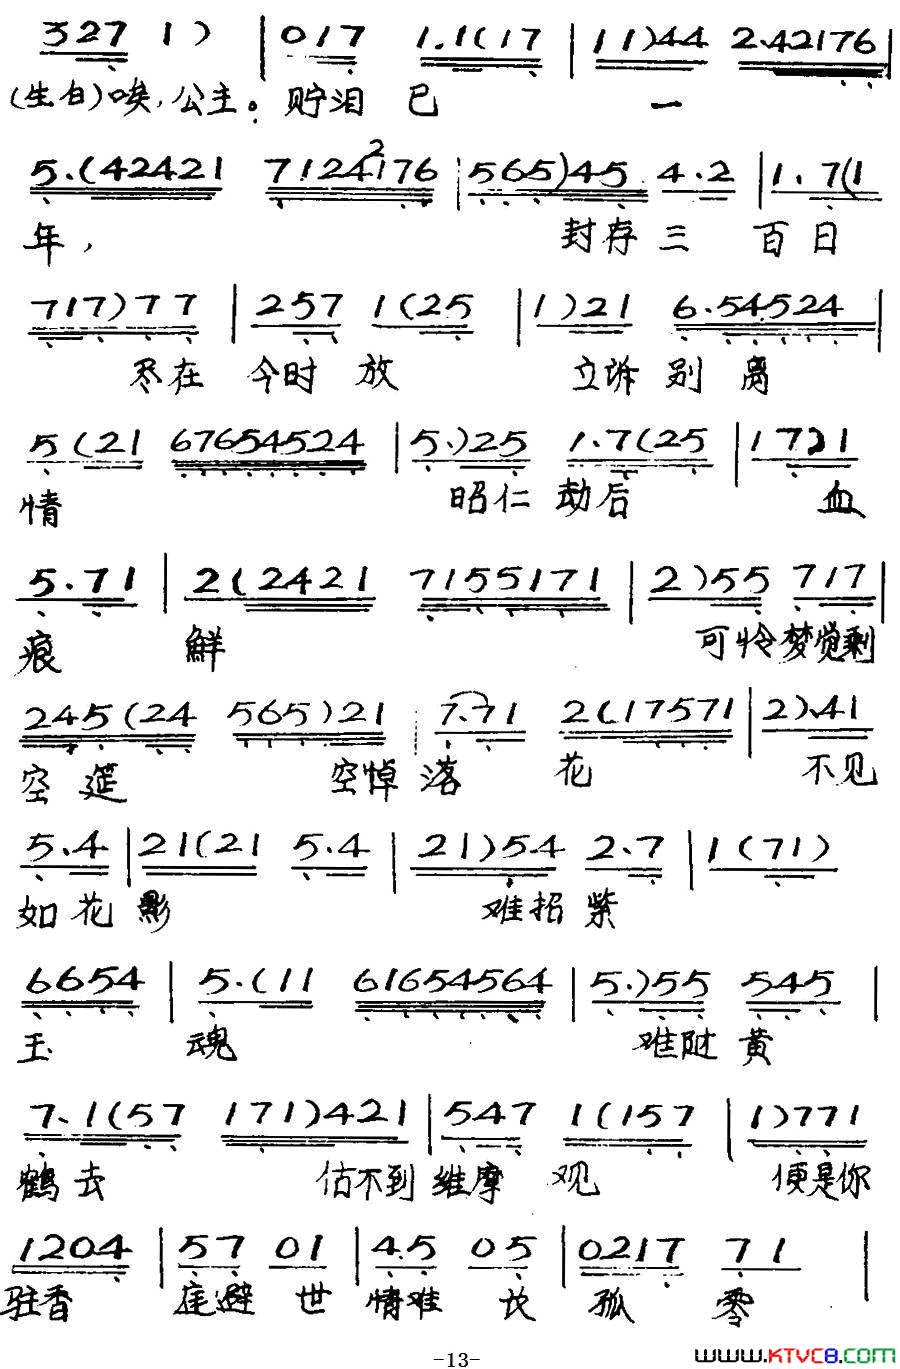 327 1 ) | 017 1.1(17 | 11)44 2.42176 |
(生白)唉,公主。贮泪已一
5.(42421 7124176 2 | 565)45 4.2 | 1.7(1
年, 封存三百日
717)77 | 257 1(25 | 1)21 6.54524 |
尽在今时放 立诉别离
5(21 67654524 | 5.)25 1.7(25 | 1721
情 昭仁劫后 血
5.71 | 2(2421 7155171 | 2)55 717 |
痕 鲜 可怜梦觉剩
245(24 565)21 | 7.71 2(.17571 | 2).41
空筵 空悼落花 不见
5.4 | 21(21 5.4 | 21)54 2.7 | 1(71)
如花影 难招紫
6654 | 5.(11 61654564 | 5.)55 545 |
玉 魂 难随黄
7.1(57 171)421 | 547 1(157 | 1)771
鹤去 估不到维摩观 便是你
1204 | 57 01 | 4.5 05 | 0217 71 |
驻香 庭避世情难 孤零
-13-
www.KTVC8.COM